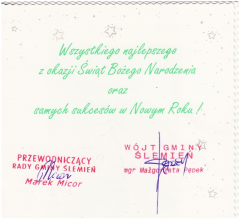 Wszystkiego najlepszego
z okazji Świąt Bożego Narodzenia
oraz
samych sukcesów w Nowym Roku!.
PRZEWODNICZĄCY
RADY GMINY ŚLEMIEŃ
Marek Micor
WÓJT GMINY
ŚLEMIEŃ
mgr Małgorzata Pępek